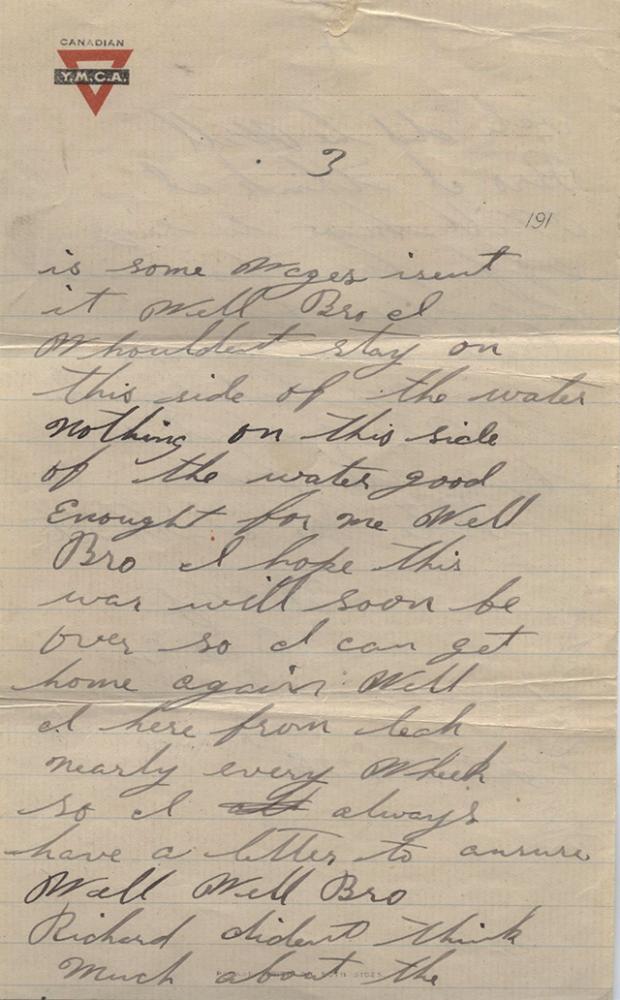 CANADIAN
Y.M.C.A.
3
191
is some Wages isent
it Well Bro I
Whouldent stay on
this side of the water
nothing on this side
of the water good
Enought for me Well
Bro I hope this
war will soon be
over so I can get
home again Well
I here from
nearly every Wheek
so I always
have a letter to ansure
Well Well Bro
Richard dident think
Much about the